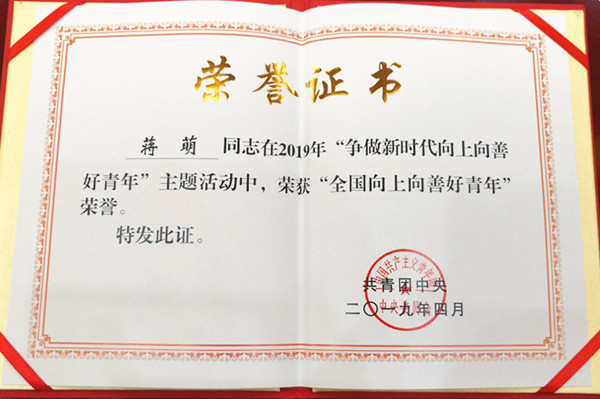 荣誉证书
蒋萌 同志在2019年“争做新时代向上向善
好青年”主题活动中，荣获“全国向上向善好青年”
荣誉。
特发此证。
共青团中央
二〇一九年四月